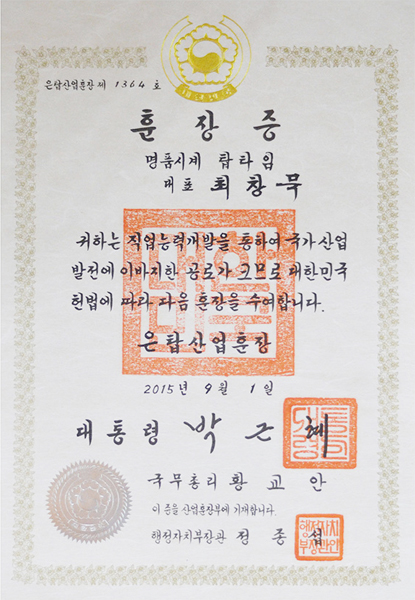 은탑산업훈장 제 1364 호
훈장증
명품시계 탑타임
대표 최창묵
귀하는 직업능력개발을 통하여 국가산업
발전에 이바지한 공로가 크므로 대한민국
헌법에 따라 다음 훈장을 수여합니다.
은탑산업훈장
2015년 9월 1일
대통령 박근혜
국무총리 황교안
이 증을 산업훈장부에 기재합니다.
행정자치부장관 정종섭
행정자치
부장관인